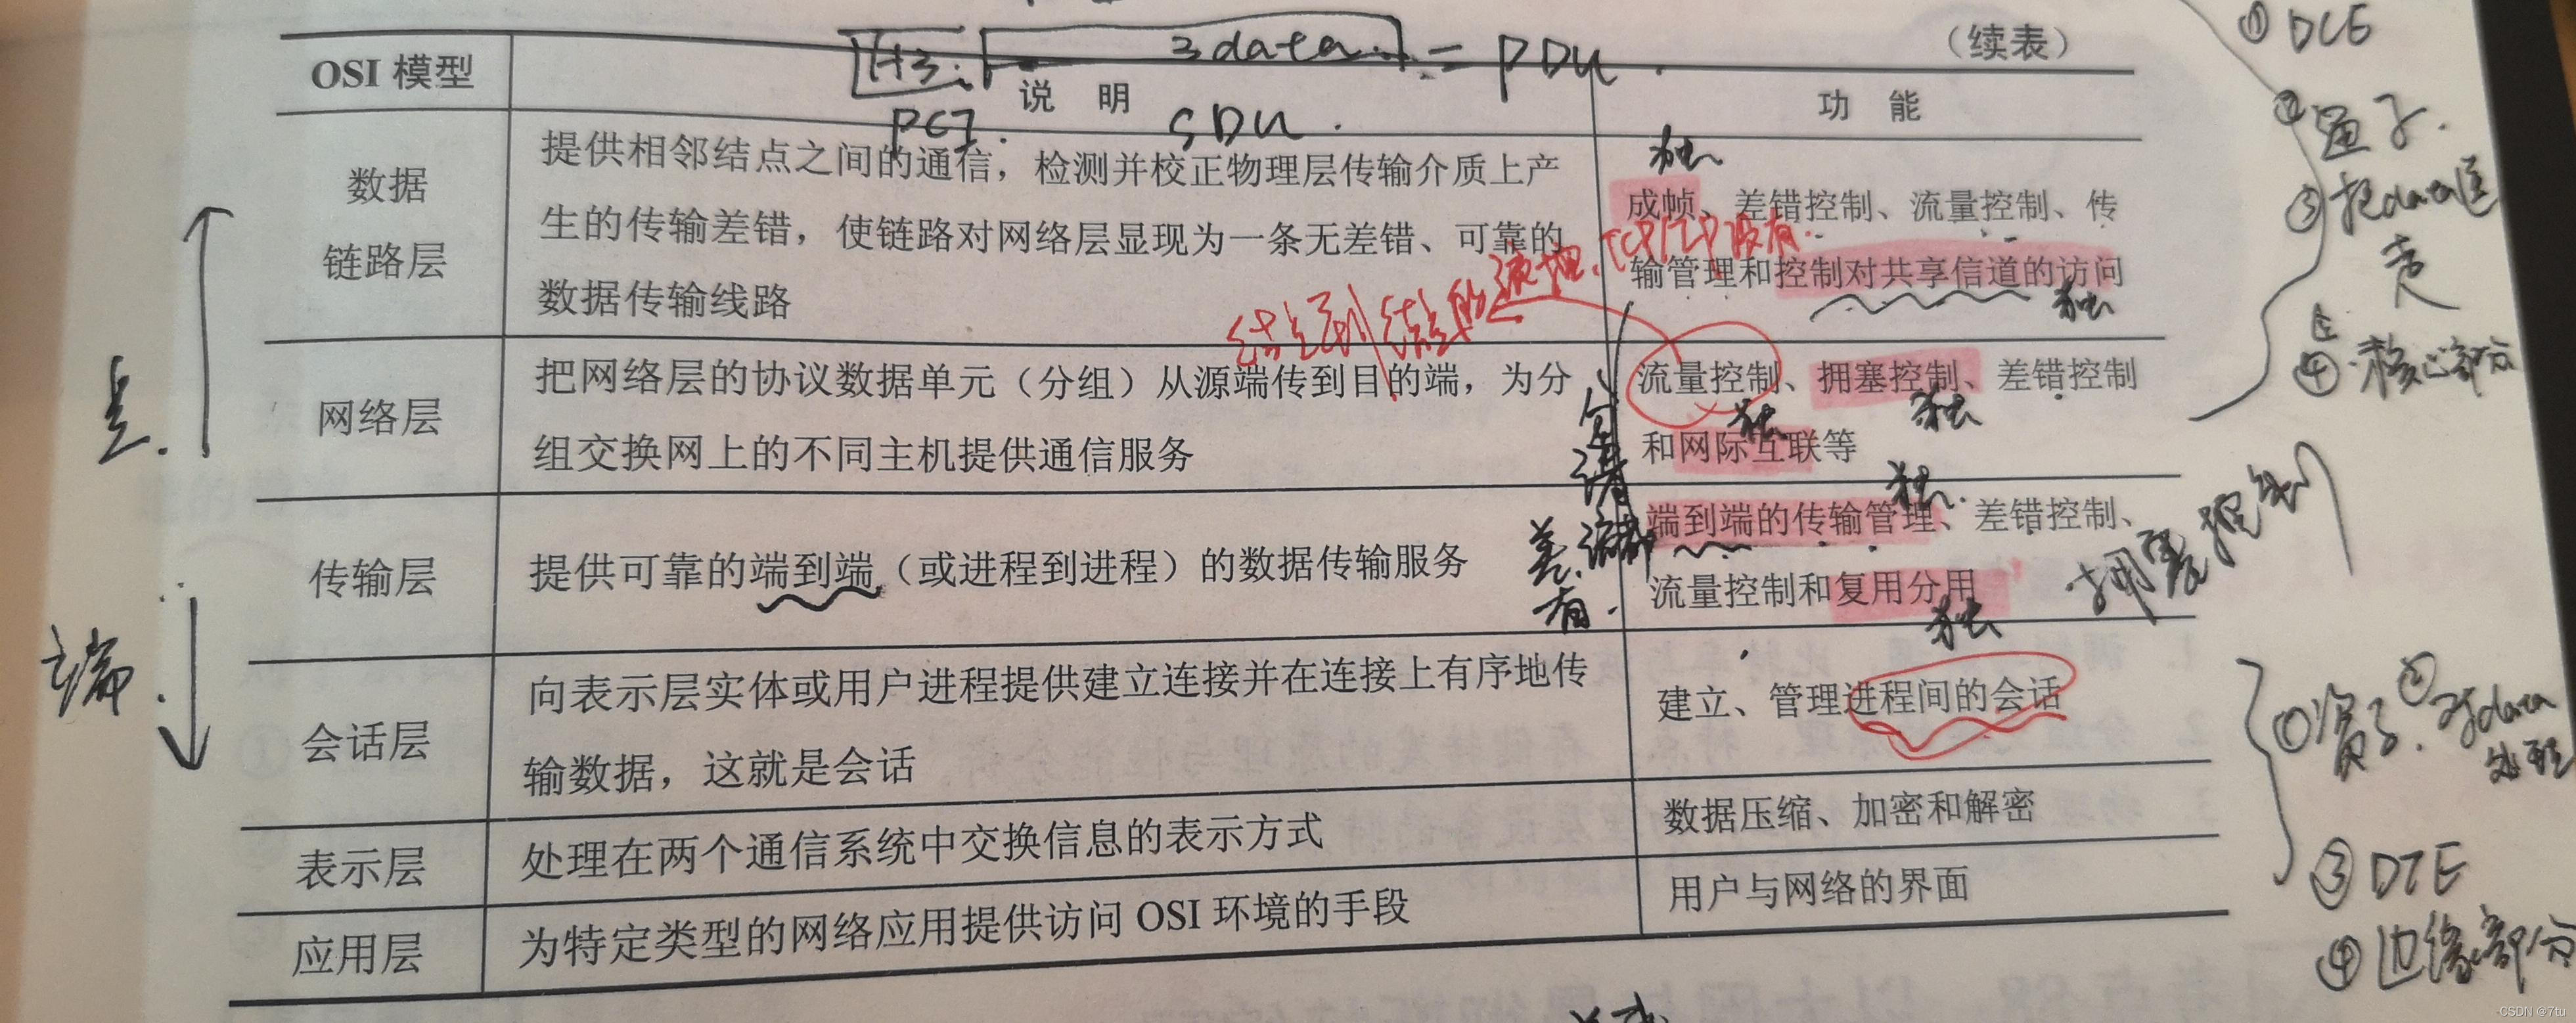 ① DCE
H3 3data = PDU.
（续表）
OSI 模型
说 明
功 能
PCI. SDU.
② 通子.
数据
链路层
提供相邻结点之间的通信，检测并校正物理层传输介质上产
生的传输差错，使链路对网络层显现为一条无差错、可靠的
数据传输线路
独
成帧、差错控制、流量控制、传
输管理和控制对共享信道的访问
独
③ 把data运
走
④ 核心部分
结点到结点的流控.TCP/IP没有.
网络层
把网络层的协议数据单元（分组）从源端传到目的端，为分
组交换网上的不同主机提供通信服务
流量控制、拥塞控制、差错控制
独 独
和网际互联等
点.
传输层
提供可靠的端到端（或进程到进程）的数据传输服务
独.
端到端的传输管理、差错控制、
流量控制和复用分用
独
差.流都
有.
拥塞控制
端.
会话层
向表示层实体或用户进程提供建立连接并在连接上有序地传
输数据，这就是会话
建立、管理进程间的会话
① 资子. ② 对data
处理
表示层
处理在两个通信系统中交换信息的表示方式
数据压缩、加密和解密
③ DTE
应用层
为特定类型的网络应用提供访问 OSI 环境的手段
用户与网络的界面
④ 边缘部分
CSDN @7tu